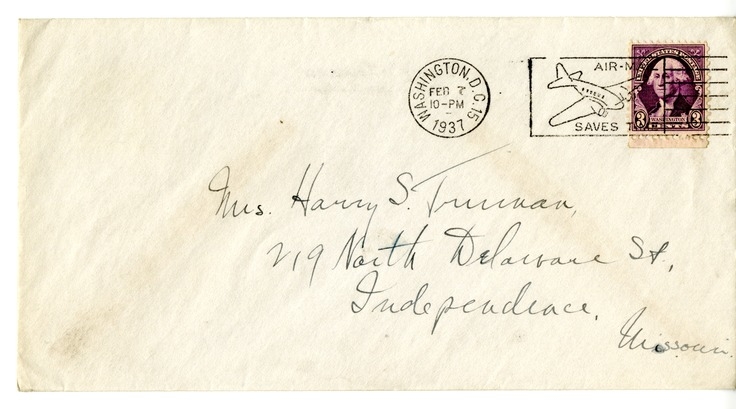 WASHINGTON, D.C. 15
FEB 7
10-PM
1937
AIR-M
SAVES T
UNITED STATES POSTAGE
3 WASHINGTON 3
CENTS
Mrs. Harry S. Truman,
219 North Delaware St.,
Independence,
Missouri.